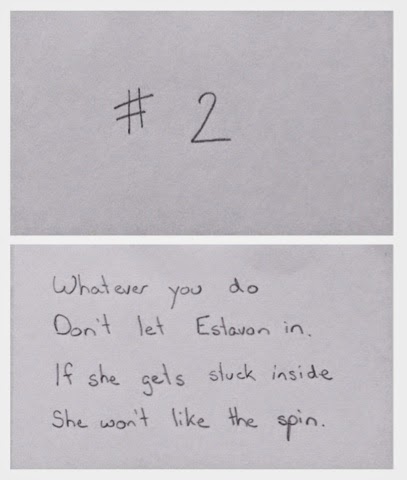 # 2
Whatever you do
Don't let Estavon in.
If she gets stuck inside
She won't like the spin.